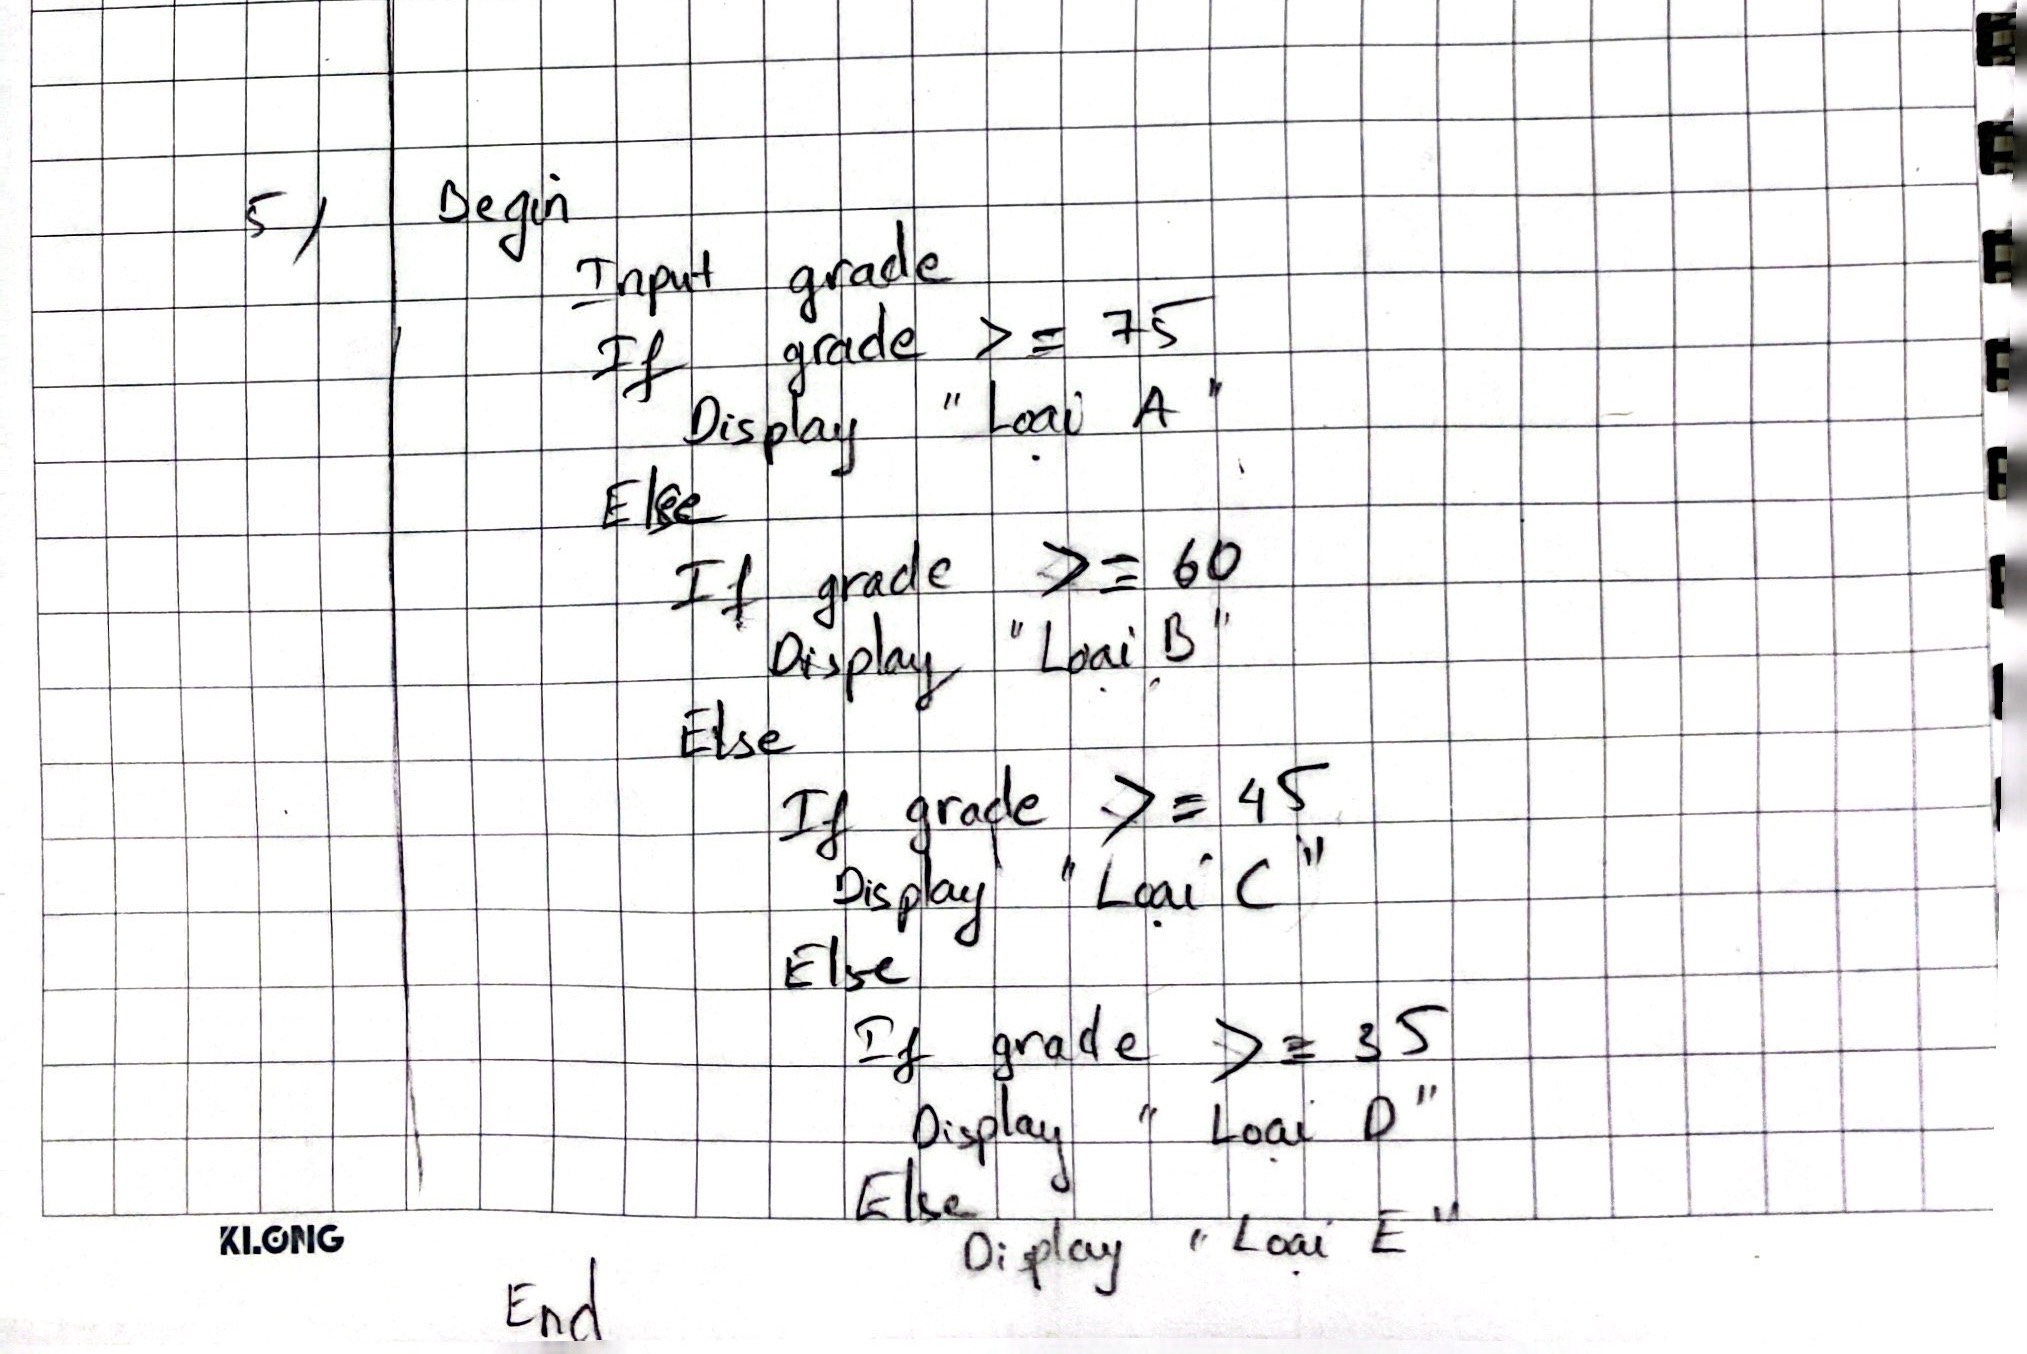 5/ Begin
Input grade
If grade >= 75
Display "Loại A"
Else
If grade >= 60
Display "Loại B"
Else
If grade >= 45
Display "Loại C"
Else
If grade >= 35
Display "Loại D"
Else
Display "Loại E"
KLONG
End